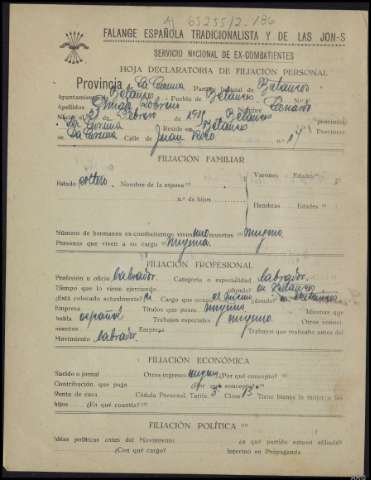 65255/2-186
FALANGE ESPAÑOLA TRADICIONALISTA Y DE LAS JON-S
SERVICIO NACIONAL DE EX-COMBATIENTES
HOJA DECLARATORIA DE FILIACIÓN PERSONAL
Provincia La Coruña Partido Judicial de Betanzos
Ayuntamiento Betanzos - Pueblo de Betanzos
Apellidos Nombre
Nació el de Febrero de en Betanzos provincia
La Coruña Reside en Betanzos Provincia
La Coruña Calle de Juan N.º
FILIACIÓN FAMILIAR
Estado soltero Nombre de la esposa
Varones Edades
n.º de hijos
Hembras Edades
Número de hermanos ex-combatientes vivos uno muertos ninguno
Personas que viven a su cargo ninguna
FILIACIÓN PROFESIONAL
Profesión u oficio labrador Categoría o especialidad labrador
Tiempo que lo viene ejerciendo ¿dónde? en Betanzos
¿Está colocado actualmente? Si Cargo el mismo ¿dónde? en Betanzos
Empresa Títulos que posee ninguno Idiomas que
habla español Trabajos especiales ninguno Otros conoci-
mientos Empresa Trabajos que realizaba antes del
Movimiento labrador
FILIACIÓN ECONÓMICA
Sueldo o jornal Otros ingresos ninguno ¿Por qué concepto?
Contribución que paga ¿Por qué concepto?
Renta de casa Cédula Personal Tarifa 3ª Clase 13 Tiene bienes la mujer o los
hijos ¿En qué cuantía?
FILIACIÓN POLÍTICA
Ideas políticas antes del Movimiento en qué partido estuvo afiliado
¿Con qué cargo? Intervino en Propaganda